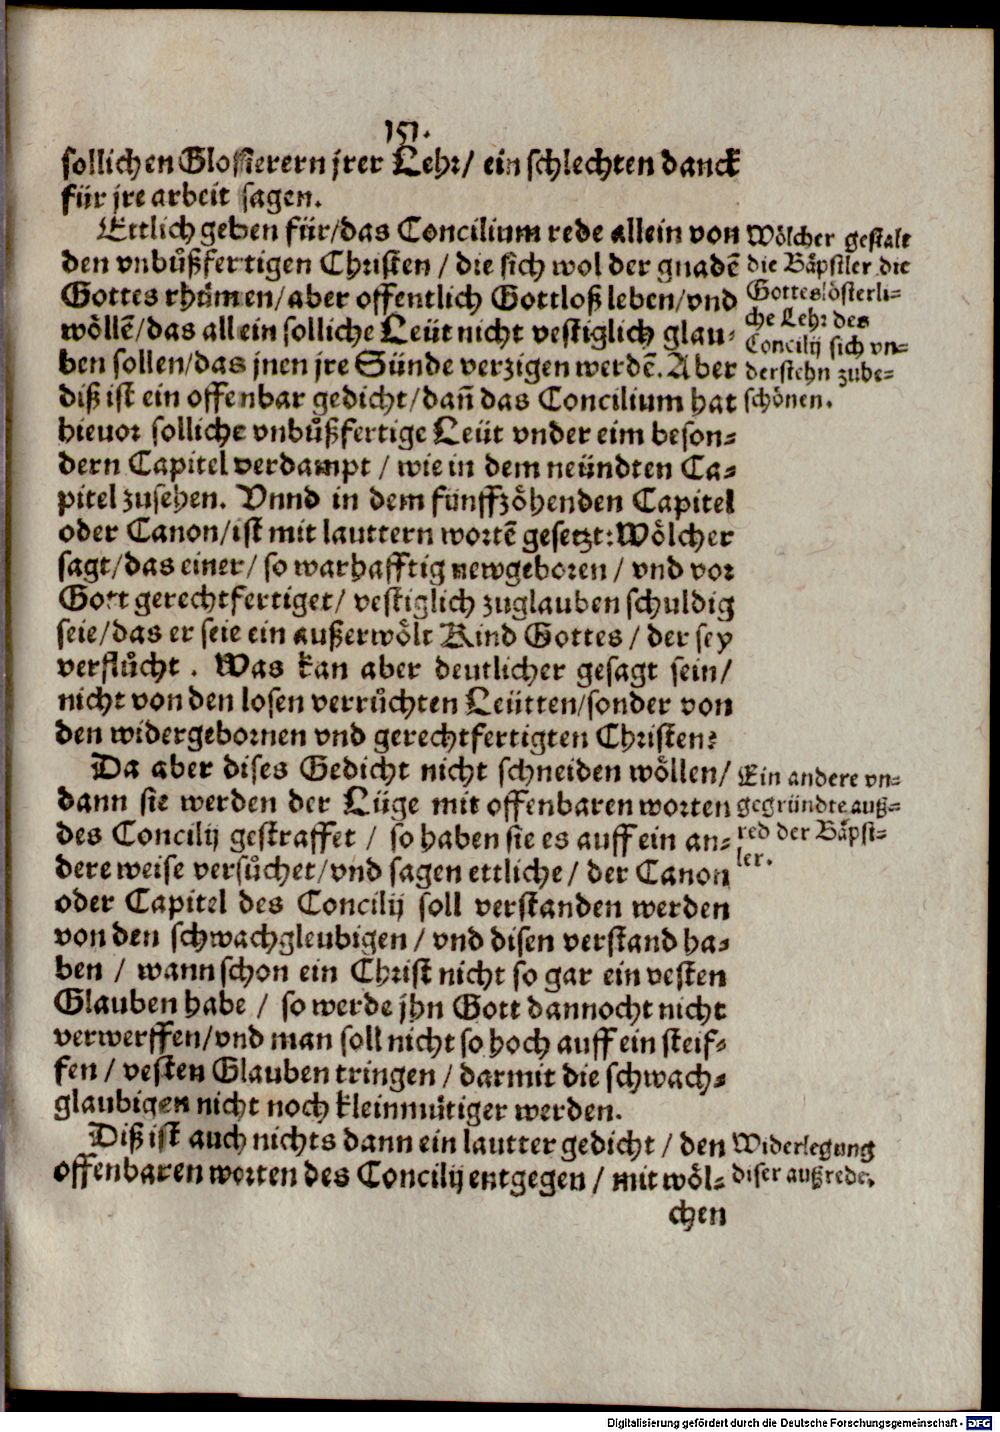 151.
sollichen Glossierern jrer Lehr/ ein schlechten danck
für jre arbeit sagen.
Ettlich geben für/das Concilium rede allein von
den vnbůßfertigen Christen / die sich wol der gnadẽ
Gottes rhůmen/aber offentlich Gottloß leben/vnd
wöllẽ/das allein solliche Leüt nicht vestiglich glau-
ben sollen/das jnen jre Sünde verzigen werdẽ. Aber
diß ist ein offenbar gedicht/dañ das Concilium hat
hieuor solliche vnbůßfertige Leüt vnder eim beson-
dern Capitel verdampt / wie in dem neündten Ca-
pitel zusehen. Vnnd in dem fünffzöhenden Capitel
oder Canon/ist mit lauttern wortẽ gesetzt: Wölcher
sagt/das einer/ so warhafftig newgeboren / vnd vor
Gott gerechtfertiget/ vestiglich zuglauben schuldig
seie/das er seie ein außerwölt Kind Gottes / der sey
verflůcht . Was kan aber deutlicher gesagt sein/
nicht von den losen verrůchten Leütten/sonder von
den widergebornen vnd gerechtfertigten Christen?
Wölcher gestalt
die Bäpstler die
Gotteslösterli-
che Lehr des
Concilij sich vn-
derstehn zube-
schönen.
Da aber dises Gedicht nicht schneiden wöllen/
dann sie werden der Lüge mit offenbaren worten
des Concilij gestraffet / so haben sie es auff ein an-
dere weise versůchet/vnd sagen ettliche/ der Canon
oder Capitel des Concilij soll verstanden werden
von den schwachgleubigen / vnd disen verstand ha-
ben / wann schon ein Christ nicht so gar ein vesten
Glauben habe / so werde jhn Gott dannocht nicht
verwerffen/vnd man soll nicht so hoch auff ein steif-
fen / vesten Glauben tringen / darmit die schwach-
glaubigen nicht noch kleinmütiger werden.
Ein andere vn-
gegründte auß-
red der Bäpst-
ler.
Diß ist auch nichts dann ein lautter gedicht / den
offenbaren worten des Concilij entgegen / mit wöl-
Widerlegung
diser außrede.
chen
Digitalisierung gefördert durch die Deutsche Forschungsgemeinschaft - DFG